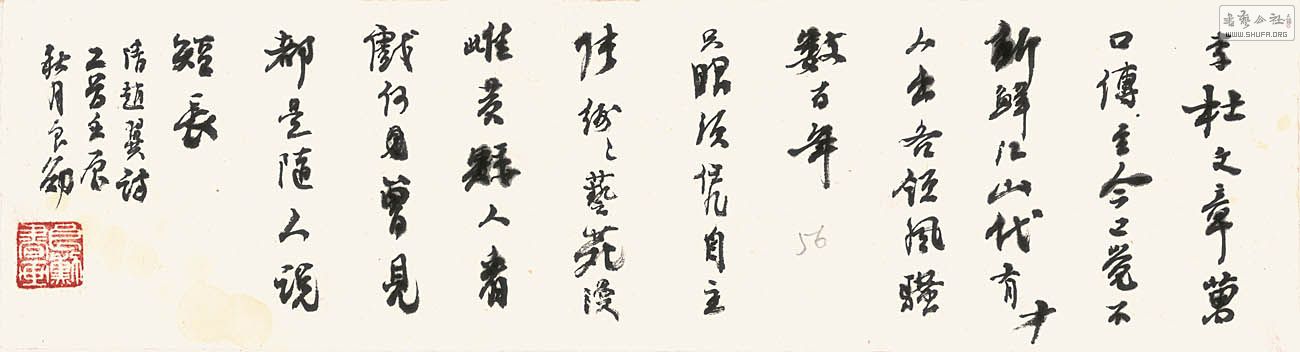 李杜文章萬
口傳至今已覺不
新鮮江山代有才
人出各領風騷
數百年
只眼須憑自主
張紛々藝苑漫
雌黃矮人看
戲何見曾見
都是隨人說
短長
清趙翼詩
壬辰
秋月
56
书艺公社
WWW.SHUFA.ORG